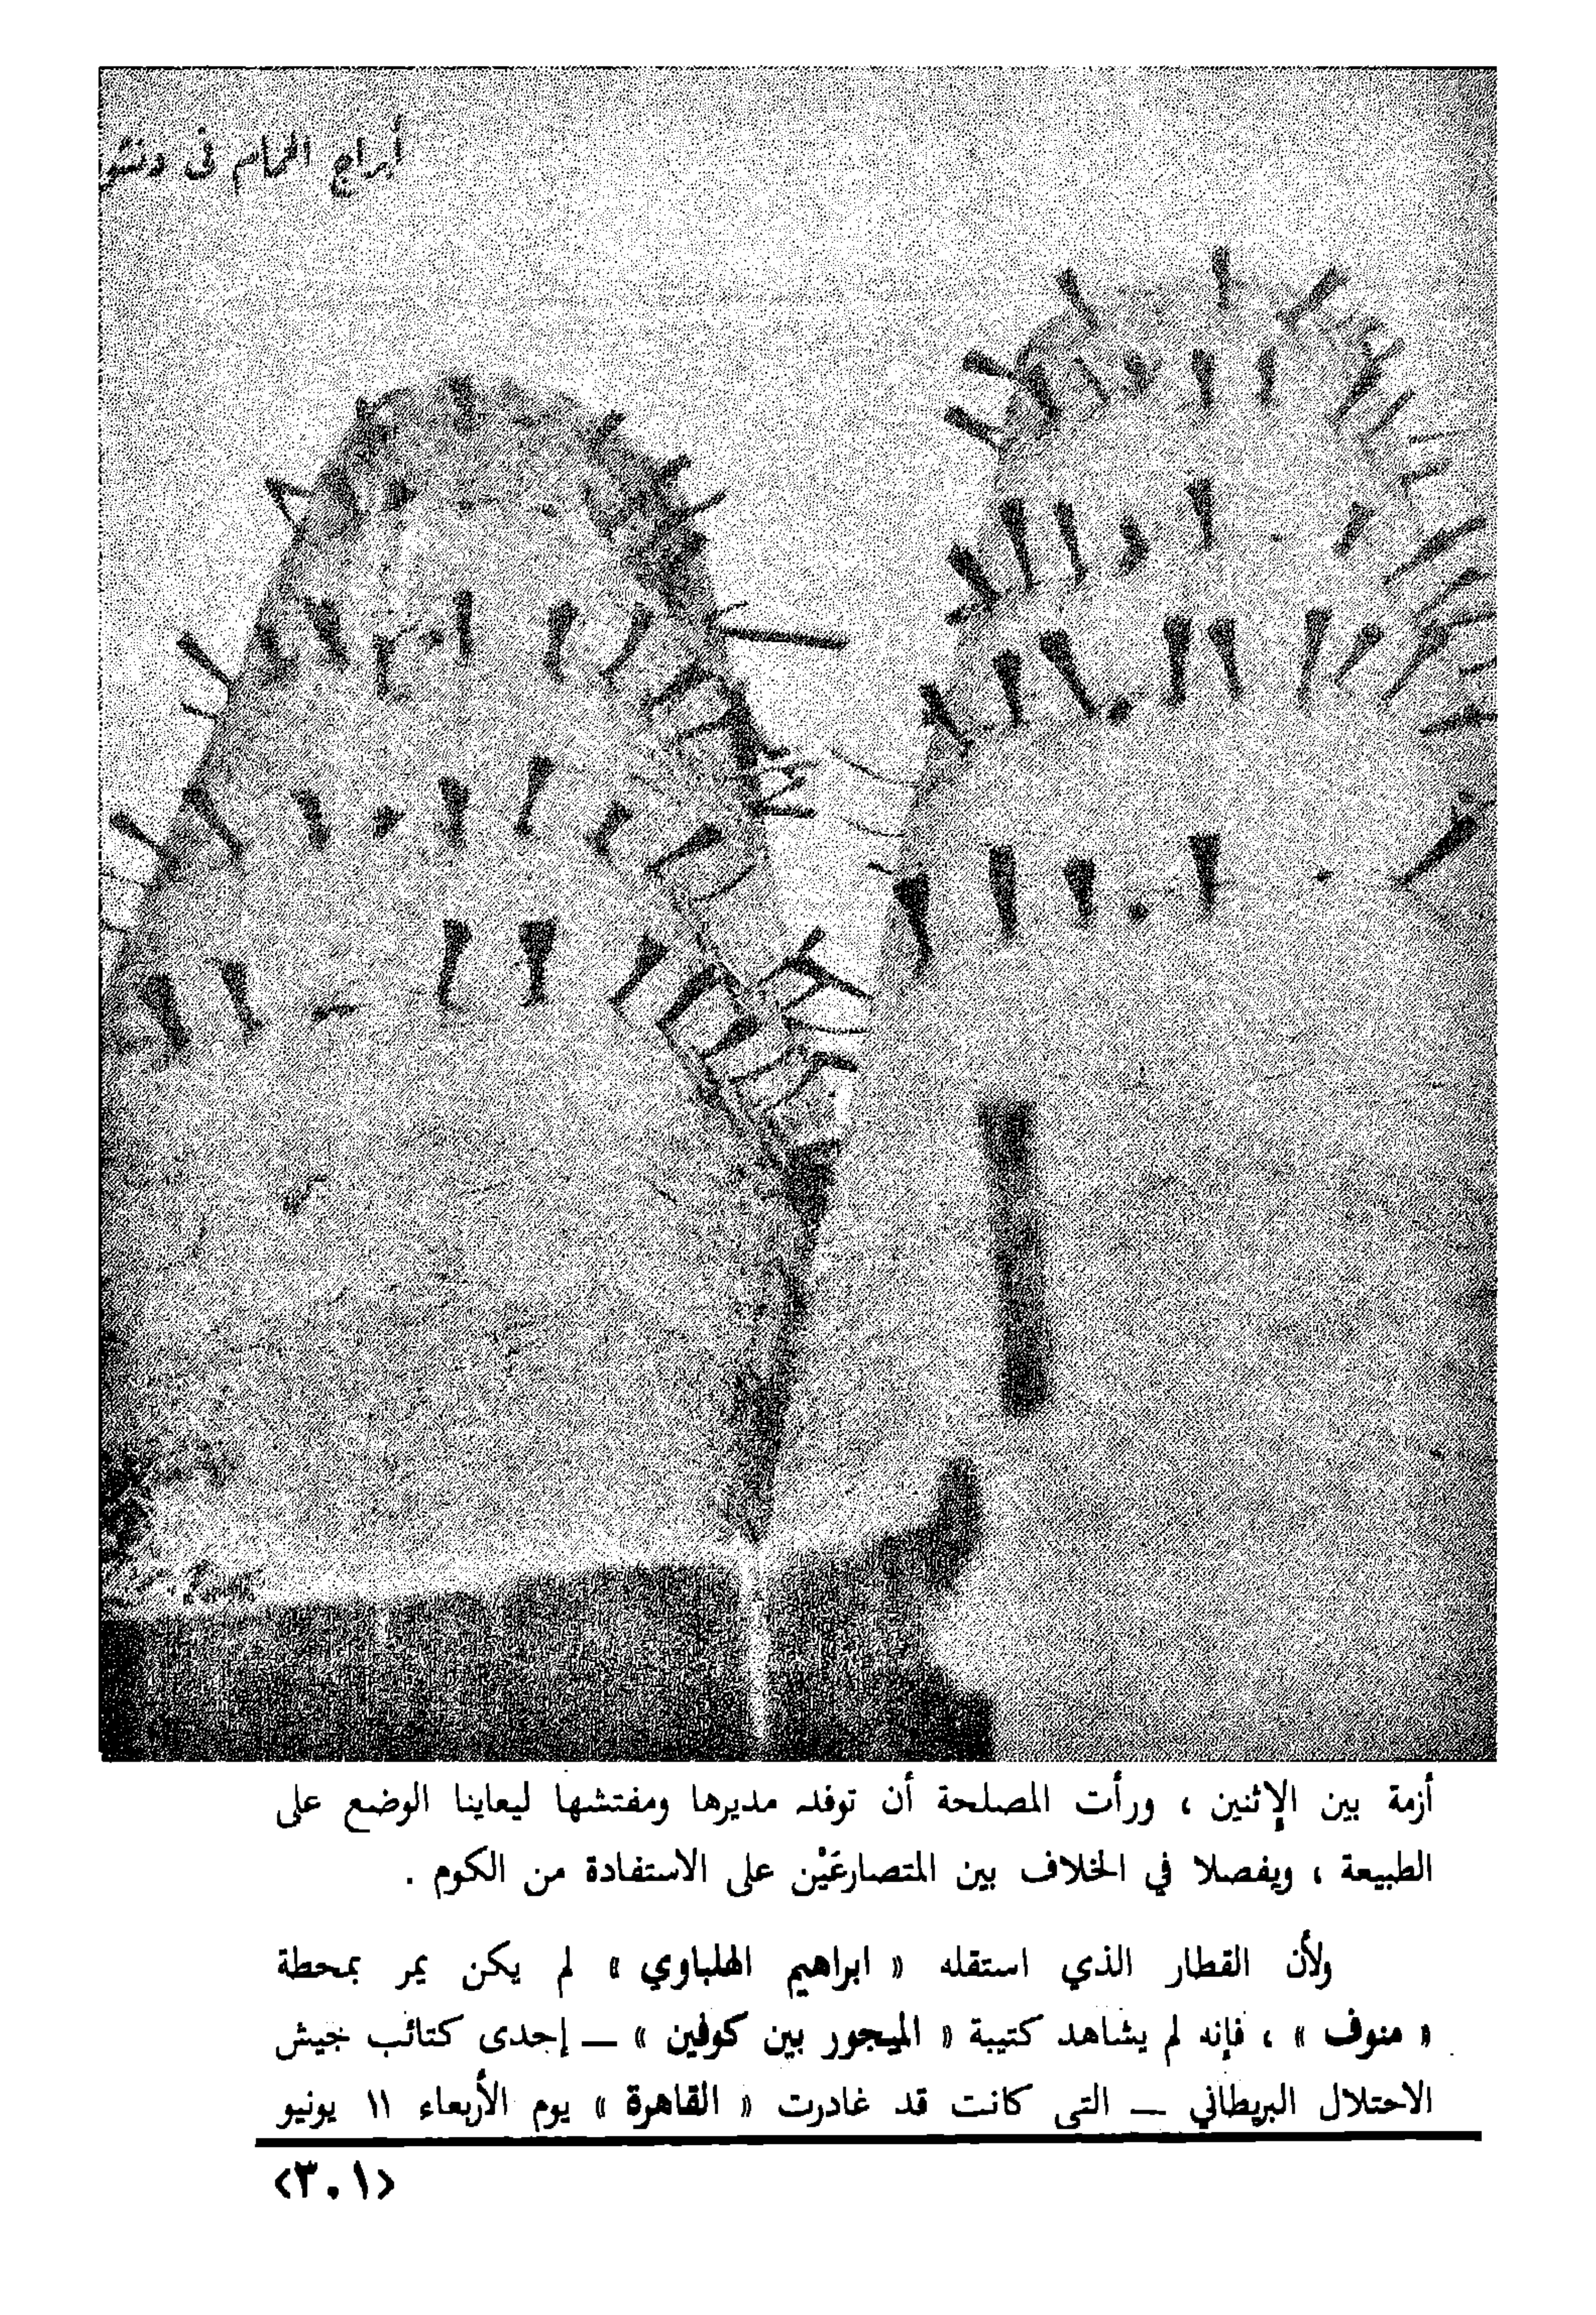 أبراج الحمام فى دنشو
أزمة بين الإثنين ، ورأت المصلحة أن توفد مديرها ومفتشها ليعاينا الوضع على
الطبيعة ، ويفصلا في الخلاف بين المتصارعَيْن على الاستفادة من الكوم .
ولأن القطار الذي استقله « ابراهيم الهلباوي » لم يكن يمر بمحطة
« منوف » ، فإنه لم يشاهد كتيبة « الميجور بين كوفين » — إحدى كتائب جيش
الاحتلال البريطاني — التى كانت قد غادرت « القاهرة » يوم الأربعاء ١١ يونيو
<٣٠١>